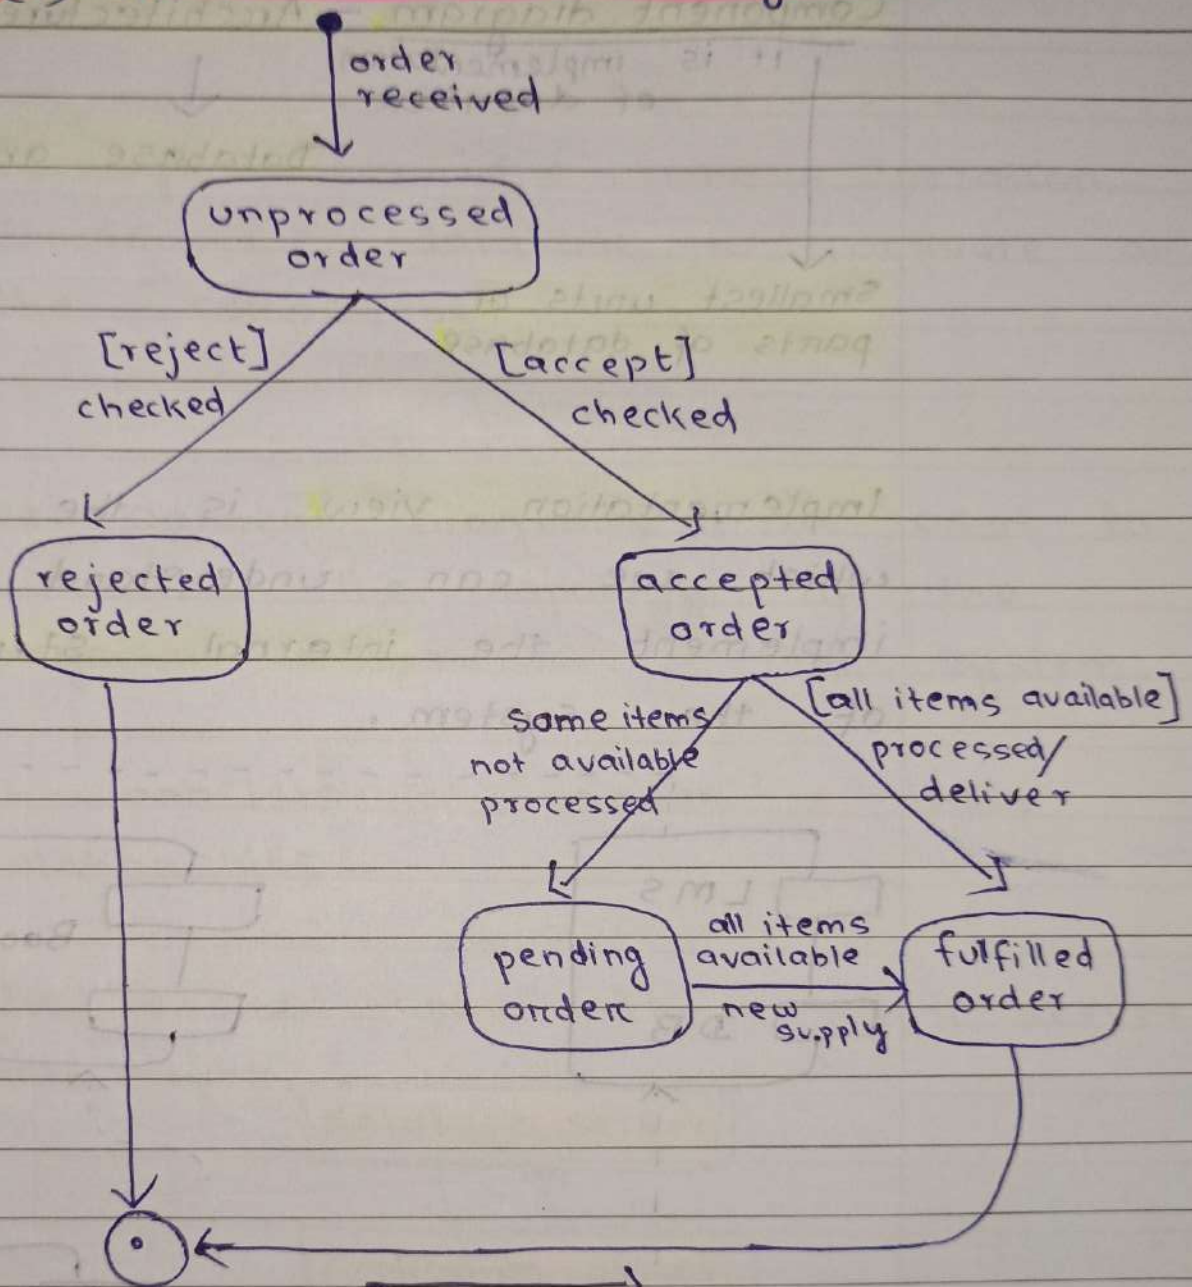 order
received
unprocessed
order
[reject]
checked
[accept]
checked
rejected
order
accepted
order
some items
not available
processed
[all items available]
processed/
deliver
pending
order
all items
available
new
supply
fulfilled
order